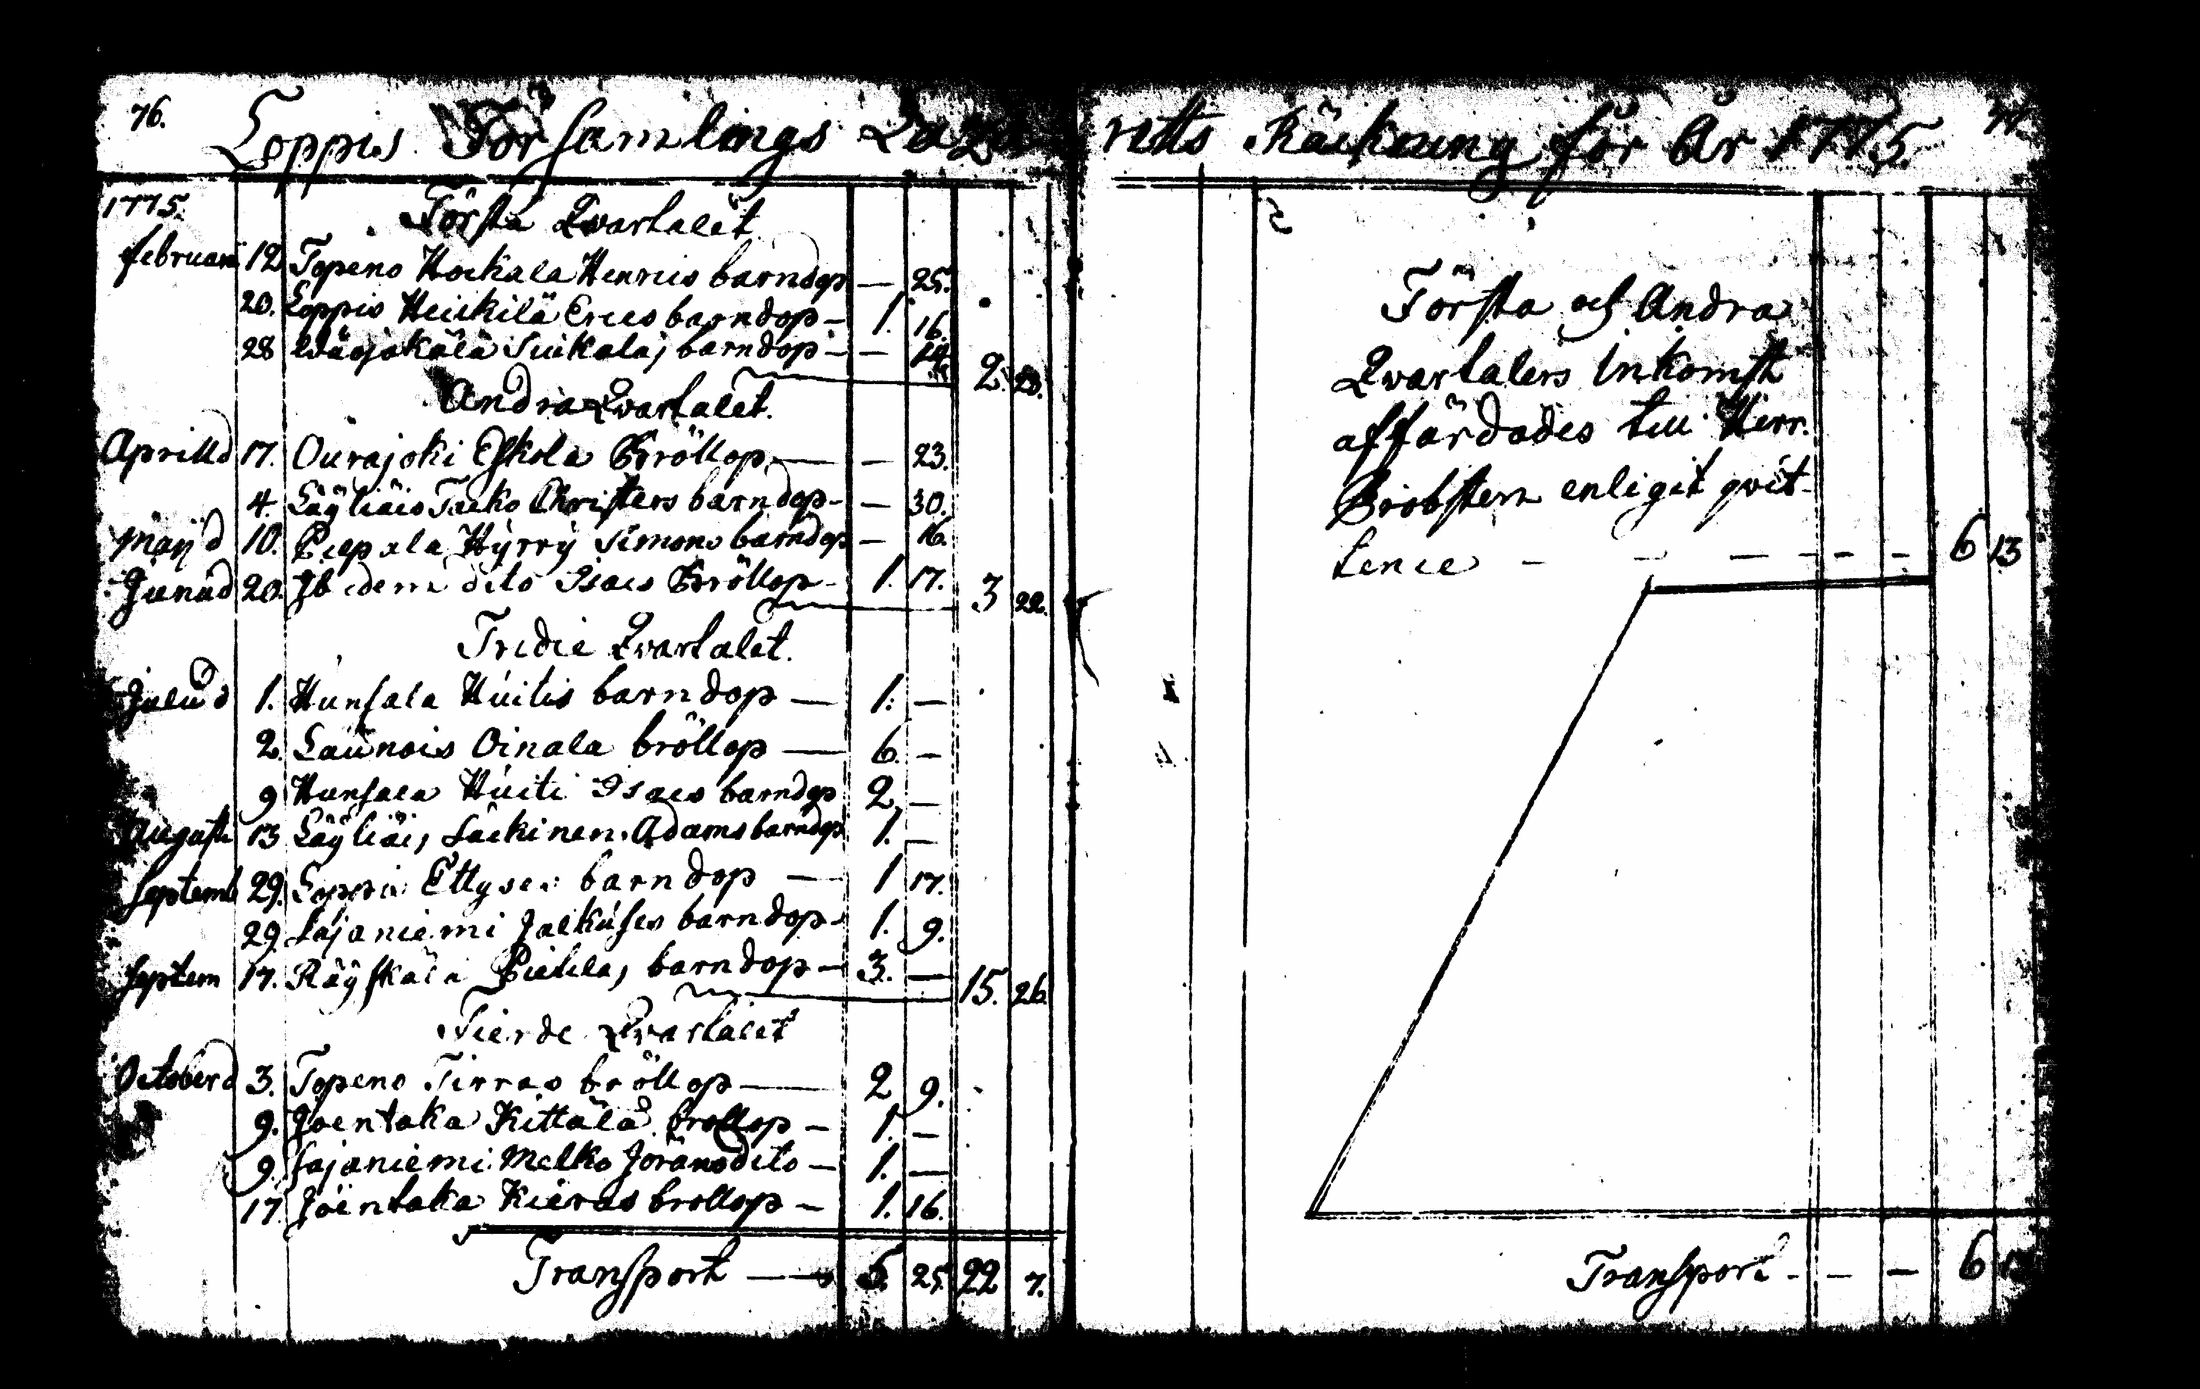 76. Loppis Församlings Laza
1775. Första Qvartalet
Februarii 12. Topeno Hockala Henrics barndop — 25.
20. Loppis Heickilä Erics barndop — 1. 16.
28 Suikalas barndop — —
2. 23.
Andra Qvartalet.
Aprill d 17. Ourajoki Eskola Bröllop — — 23.
4. Läyliäis Tacko Christers barndop — — 30.
Maij d 10. Pilpala Hyrry Simons barndop — 16.
Junii d 20. Ibidem dito Isacs Bröllop — 1. 17. 3 22.
Tredie Qvartalet.
Julii d 1. Hunsala Huitis barndop — 1. —
2. Launois Oinala bröllop — 6. —
9 Hunsala Huiti Isacs barndop 2. —
Augusti 13 Läyliäis Läckinen Adams barndop 1. —
Septemb 29. Loppis barndop — 1 17.
29. Sajaniemi barndop 1. 9.
Septem 17. Räyskälä Pietilas barndop — 3. — 15. 26.
Fierde Qvartalet
October d 3. Topeno Tirras bröllop — 2 9.
9. Joentaka Kittälä bröllop — 1. —
9. Sajaniemi Melko Jörans dito — 1. —
17. Joentaka Kieras brollop — 1. 16.
Transport — 5. 25. 22 7.
retts Räckning för År 1775. 77.
Första och Andra
Qvartalers Inkomst
affärdades till Herr
Probsten enligit qvit-
tence — — — — — — 6 13
Transport — — — 6 13